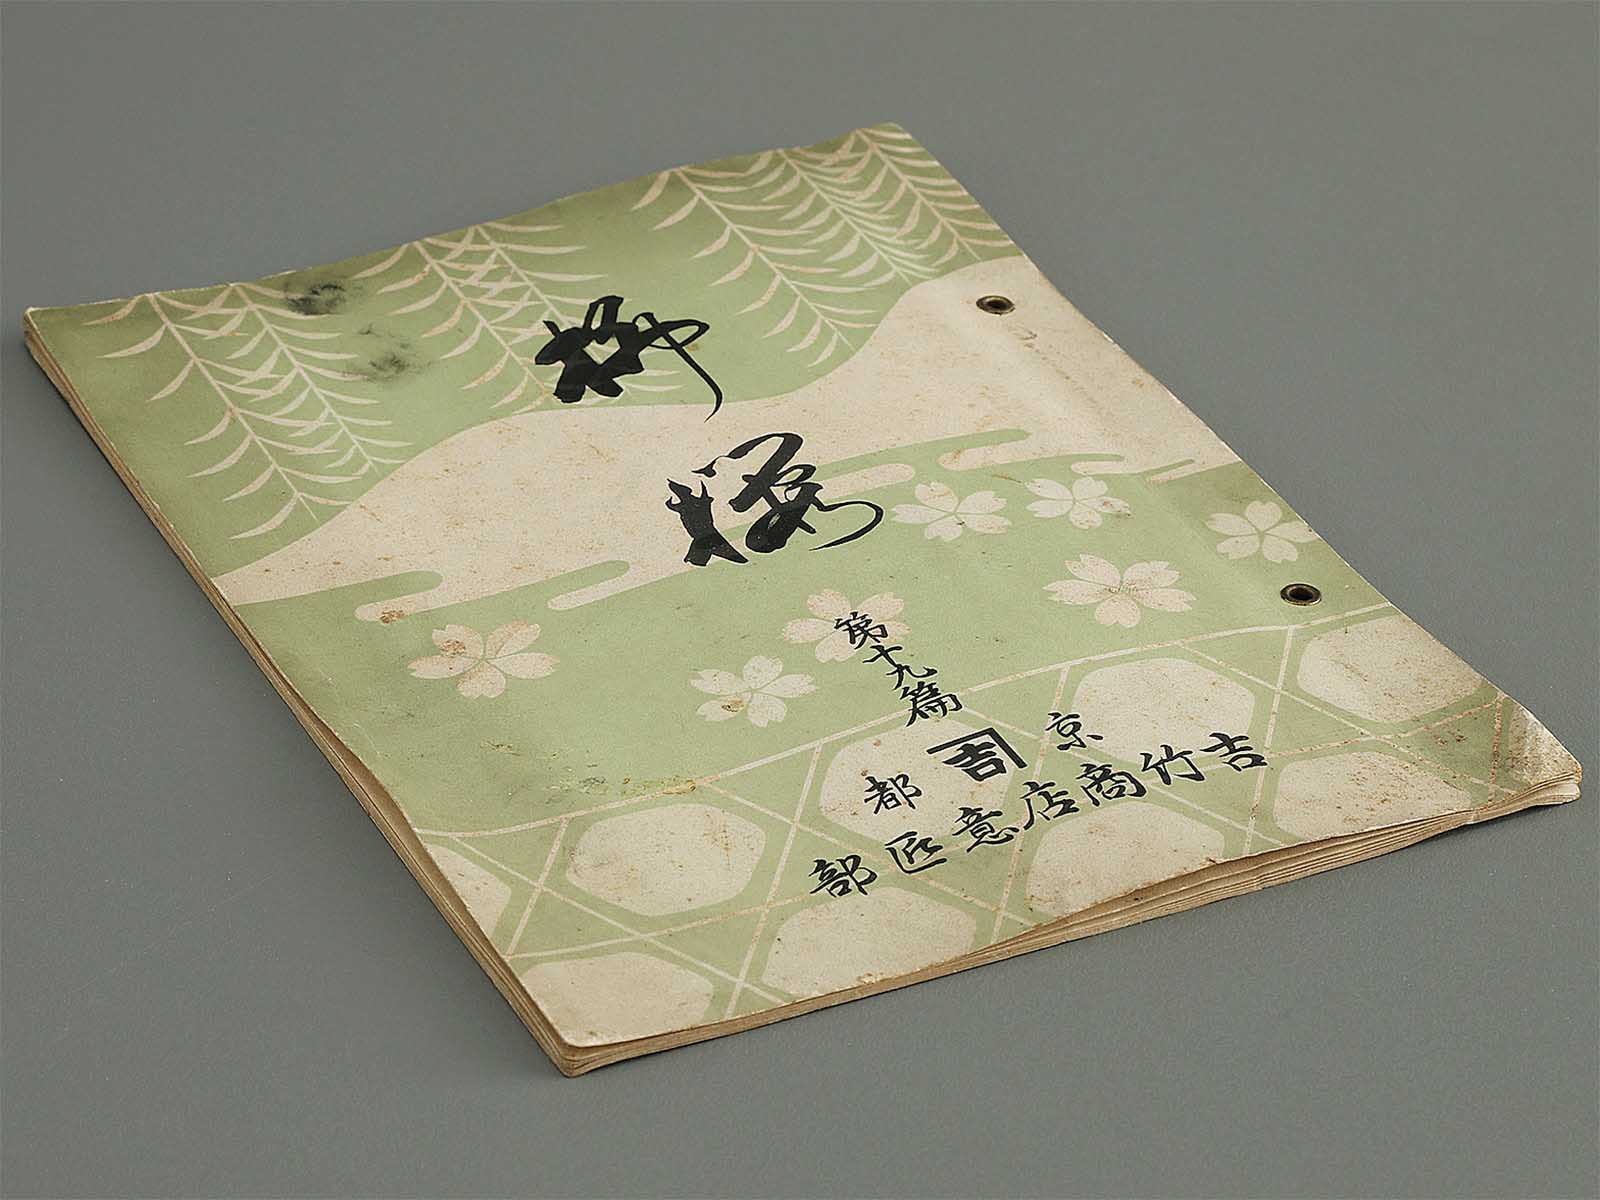 柳櫻
第十九篇
京吉都
吉竹商店意匠部